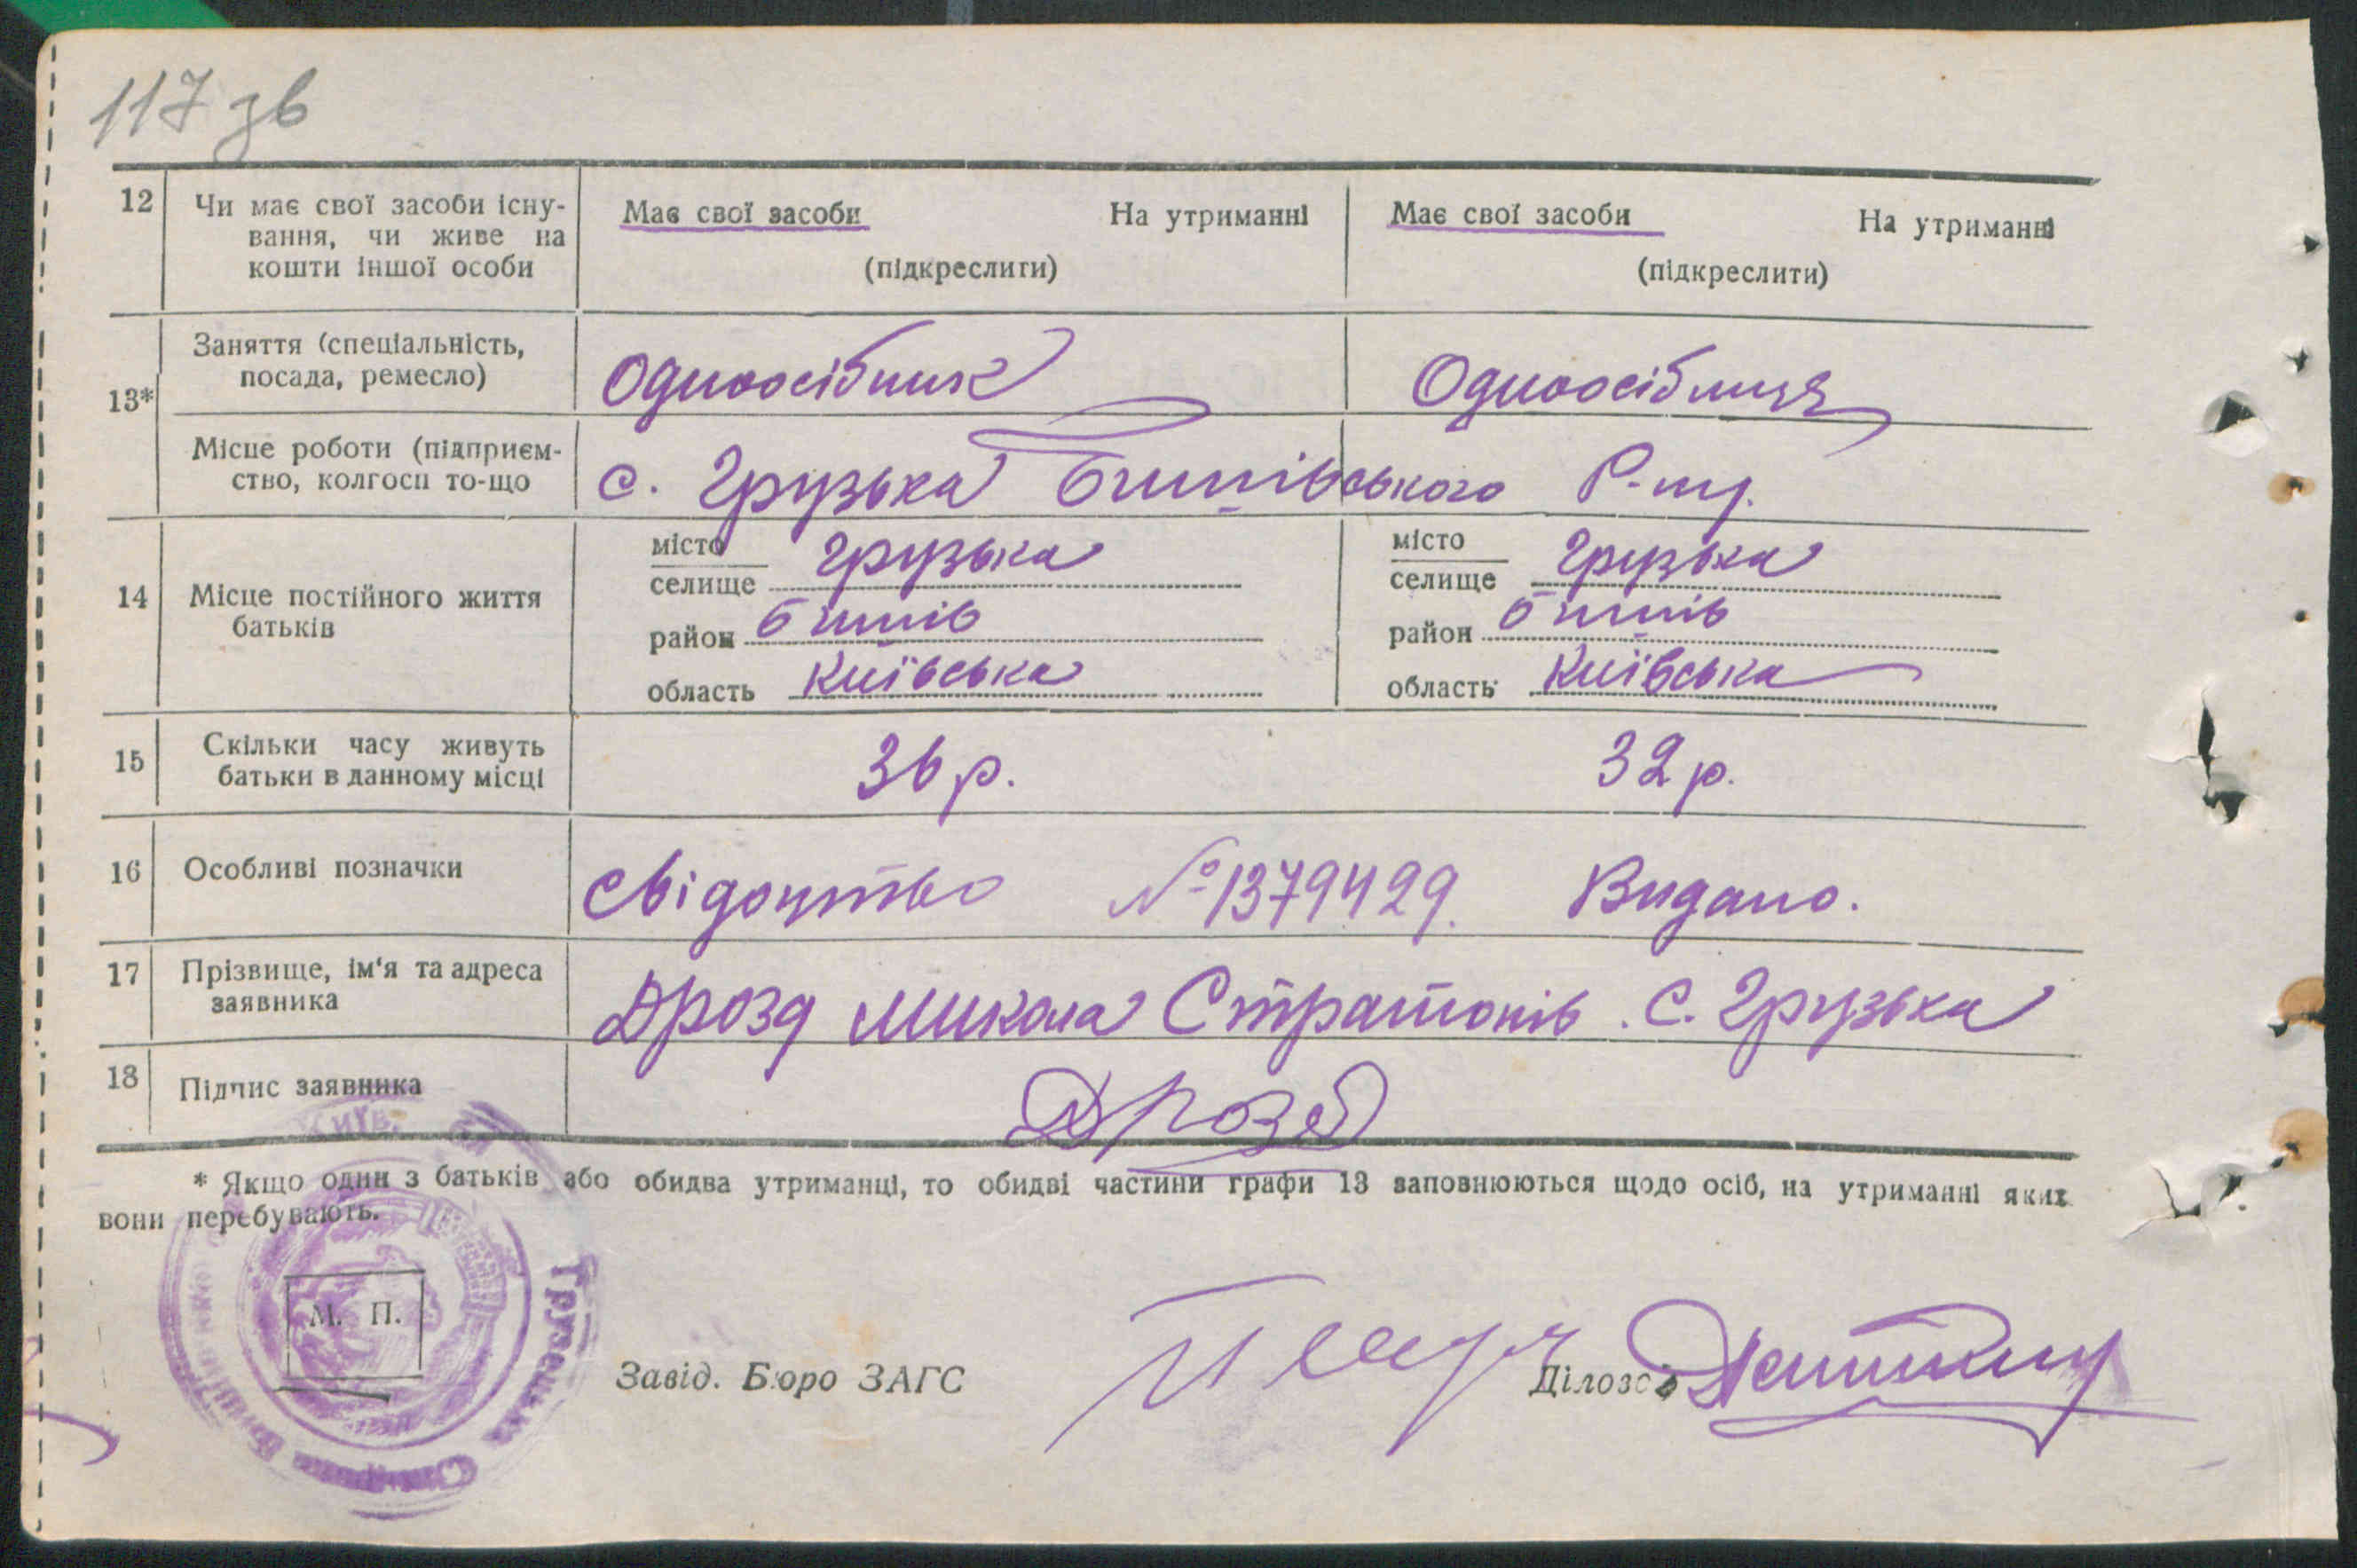 117 зв
12 Чи має свої засоби існу-
вання, чи живе на
кошти іншої особи
Має свої засоби На утриманні
(підкреслити)
Має свої засоби На утриманні
(підкреслити)
13* Заняття (спеціальність,
посада, ремесло)
Одноосібник Одноосібниця
Місце роботи (підприєм-
ство, колгосп то-що
с. Грузька Бишівського Р-ну.
14 Місце постійного життя
батьків
місто
селище Грузька
район Бишів
область Київська
місто
селище Грузька
район Бишів
область Київська
15 Скільки часу живуть
батьки в данному місці
36 р. 32 р.
16 Особливі позначки
Свідоцтво № 1379429. Видано.
17 Прізвище, ім'я та адреса
заявника
Дрозд Микола Стратонів. С. Грузька
18 Підпис заявника
Дрозд
* Якщо один з батьків або обидва утриманці, то обидві частини графи 13 заповнюються щодо осіб, на утриманні яких
вони перебувають.
М. П.
Грузецька
Завід. Бюро ЗАГС
Діловод